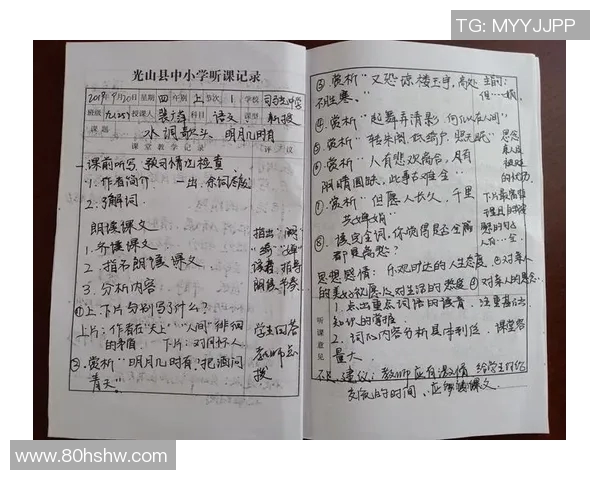 TG: MYYJJPP
光山县中小学听课记录
2019年9月20日 星期 四 年级 上 节次 1 学校
班级 九(25) 授课人 科目 语文 课型 新授
课题 水调歌头·明月几时有
课堂教学记录 评议
一 课前听写、预习情况检查
1. 作者简介
2. 了解词
朗读课文
1. 齐读课文
2. 指名朗读课文
3. 分析内容
①上、下片分别写了什么?
上片:作者在"天上""人间"徘徊
的矛盾 下片:对月怀人
②赏析"明月几时有,把酒问
青天"
指出
读音,指导
朗读、节奏
学生回答
教师点
拨
③赏析"又恐琼楼玉宇,高处
不胜寒。"
④赏析"起舞弄清影,何似在人间"
⑤赏析"转朱阁,低绮户,照无眠"
⑥赏析"人有悲欢离合,月有
阴晴圆缺,此事古难全"
⑦赏析"但愿人长久,千里
共婵娟"
⑧读完全词,你觉得是否全篇
都是离愁?
思想感情:乐观旷达的人生态度 ②对亲人
的美好祝愿 ③对生活的热爱 ④对亲人的思念
听课意见
1. 点出重点词语的读音,注重基础
知识的掌握
2. 词的内容分析具体到位,课堂容
量大。
建议:教师应有激情 给学生
交流的时间、应 课文
www.80hshw.com